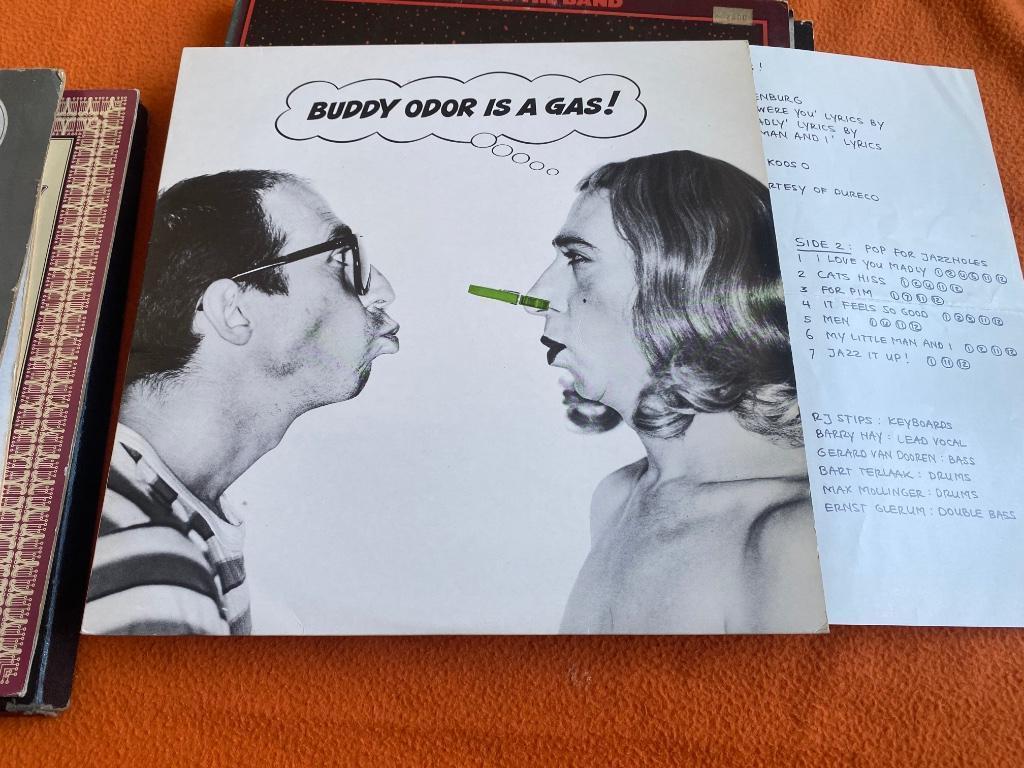 THE BAND
BUDDY ODOR IS A GAS!
!
ENBURG
WERE YOU' LYRICS BY
ADLY' LYRICS BY
MAN AND I' LYRICS
KOOS O
RTESY OF DURECO
SIDE 2: POP FOR JAZZHOLES
1 I LOVE YOU MADLY
2 CATS HISS
3 FOR PIM ① ⑦ ⑪ ⑫
4 IT FEELS SO GOOD
5 MEN
6 MY LITTLE MAN AND I
7 JAZZ IT UP! ① ⑪ ⑫
RJ STIPS: KEYBOARDS
BARRY HAY: LEAD VOCAL
GERARD VAN DOOREN: BASS
BART TERLAAK: DRUMS
MAX MOLLINGER: DRUMS
ERNST GLERUM: DOUBLE BASS